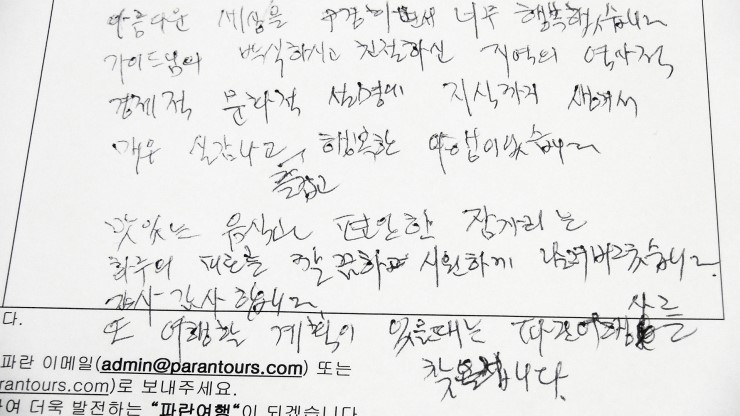 아름다운 세상을 구경하면서 너무 행복했습니다
가이드님의 박식하시고 친절하신 지역의 역사적
경제적 문화적 설명에 지식까지 생겨서
매우 실감나고 행복한 여행이었습니다
즐겁고
맛있는 음식과 편안한 잠자리는
하루의 피로를 말끔하고 시원하게 날려버렸습니다.
감사 감사 합니다
또 여행할 계획이 있을때는 파란여행사를
찾을겁니다.
다.
파란 이메일(admin@parantours.com) 또는
rantours.com)로 보내주세요.
여 더욱 발전하는 "파란여행"이 되겠습니다